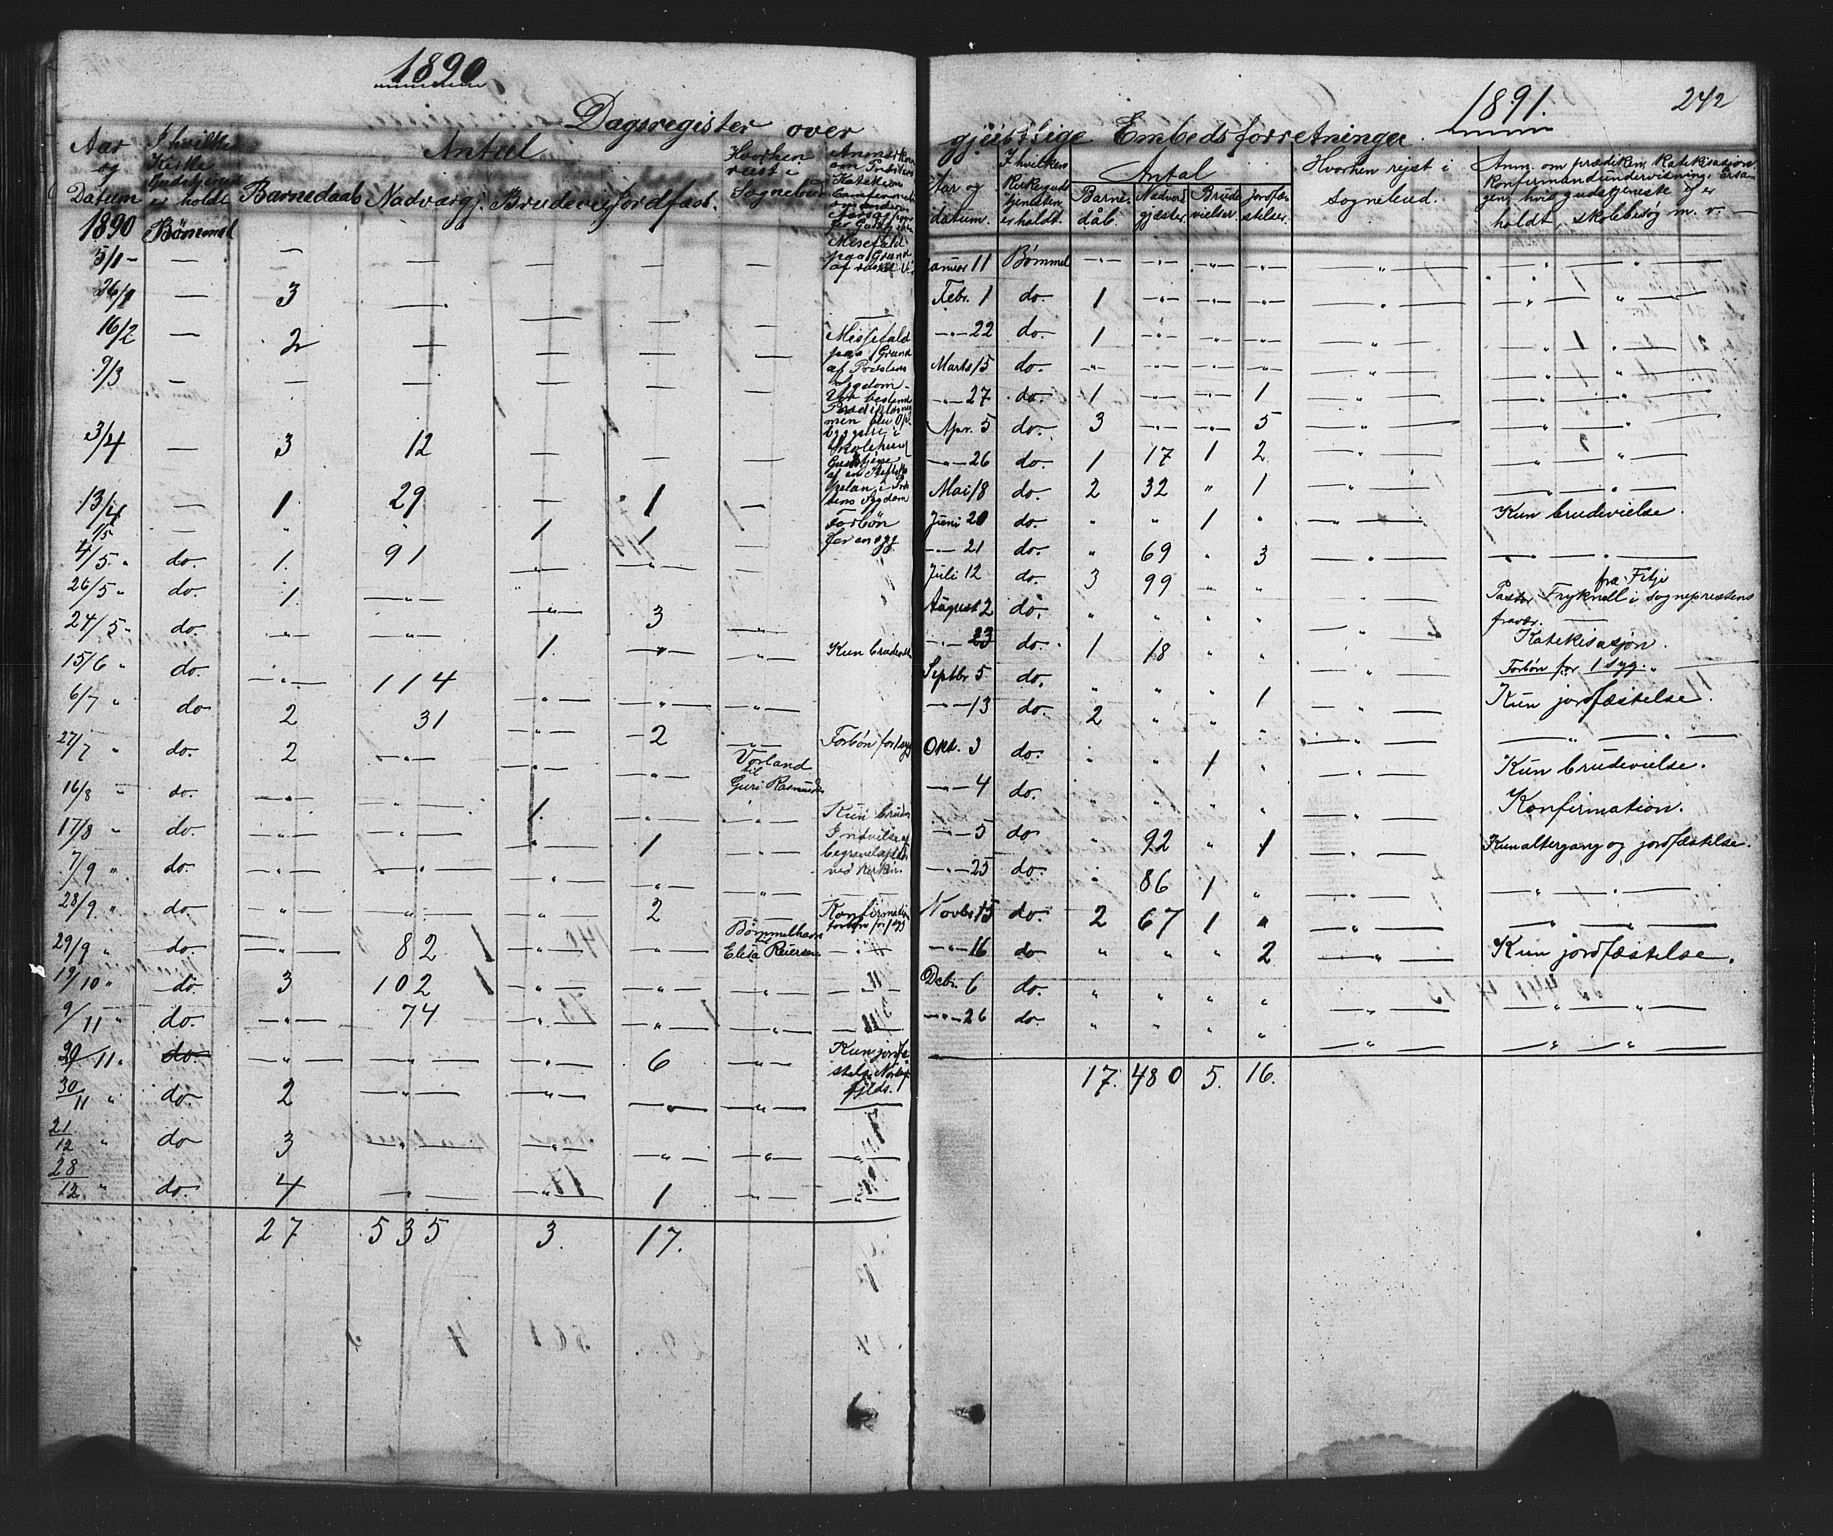 1890
Dagsregister over
Aar og Datum | I hvilken Kirke Gudstjenest er holdt | Antal | Barnedaab | Nadværgj. | Brudevi. | Jordfæst. | Hvorhen reist i Sognebud
1890 Bømmel
5/1 — — — — — — Missefald paa Grund af
26/1 — 3 — — — —
16/2 — 2 — — — — Missefald paa Grund af Præstens sygdom
9/3 — — — — — —
3/4 — 3 12 — — —
13/4 — 1 29 — 1 —
1/5 — " " 1 1 — Forbøn for en syg
4/5 " do. 1. 91 —"— —"— —
26/5 " do. 1. —"— —"— 3 —"—
24/5 " do. —"— —"— 1. —"— —"— Kun brudeviel
15/6 " do —"— 114 —"— —"— —"—
6/7 " do 2 31 —"— 2 —"— Forbøn for 1 syg
27/7 " do. 2 —"— —"— —"— Vorland til Guri Rasmusd
16/8 " do. —"— —"— 1. —"— Kun brudev
17/8 " do —"— —"— —"— 1 —"— Indvielse af begravelsesplads ved Kirken.
7/9 " do. —"— —"— —"— —"— —"—
28/9 " do. —"— —"— —"— 2 —"— Konfirmation forbøn for 1 syg
29/9 " do —"— 82. —"— —"— Bømmelhavn Elisa Reiersen
19/10 " do. 3 102 —"— —"— —"— —"—
9/11 " do. —"— 74 —"— —"— —"— —"—
29/11 " do. —"— —"— —"— 6 —"— Kun jordfæstelse
30/11 " do 2 —"— —"— —"— —"—
21/12 " do 3 —"— —"— —"— —"— —"—
28/12 " do. 4 —"— —"— 1 —"— —"—
27 535 3. 17.
1891. 242
gjeistlige Embedsforretninger.
Aar og datum. | I hvilken Kirke gudstjenesten er holdt. | Antal | Barnedåb. | Nadvergjester | Brudevielser | Jordfæstelser. | Hvorhen rejst i sognebud. | Anm. om prædiken, katekisasjon, konfirmandundervisning, årsagen, hvis gudstjeneste ej er holdt, skolebesøg m. v.
Januar 11 Bømmel —"— —"— —"— —"— —"— —"—
Febr. 1 do. 1 —"— —"— —"— —"— —"—
—"—22 do. 1 —"— —"— —"— —"— —"—
Marts 15 do. —"— —"— —"— —"— —"— —"—
—"—27 do. 1 —"— —"— 1 —"— —"—
Apr. 5 do. 3 —"— —"— 5 —"— —"—
—"—26 do. 1 17 1 2. —"— —"—
Mai 18 do. 2 32 " 1 —"— —"—
Juni 20 do. " " 1 " —"— Kun brudevielse.
—"—21 do. " 69 " 3 —"— —"—
Juli 12 do. 3 99 " " —"— fra Fitje
August 2 do. " " " " —"— Pastor Fryknell i sognepræstens fravær.
—"—23 do. 1 18 " " —"— Katekisasjon. Forbøn for 1 syg.
Septbr 5 do. " " " 1 —"— Kun jordfæstelse.
—"—13 do. 2 " " " —"— —"—
Okt. 3 do. " " 1 " —"— Kun brudevielse.
—"—4 do. " " " " —"— Konfirmation.
—"—5 do " 92 " 1 —"— Kun altergang og jordfæstelse.
—"—25 do. " 86 1 " —"— —"—
Novbr 15 do. 2 67 1 " —"— —"—
—"—16 do " " " 2 —"— Kun jordfæstelse.
Decbr. 6 do. " " " " —"— —"—
—"—26 do. " " " " —"— —"—
17. 480 5. 16.